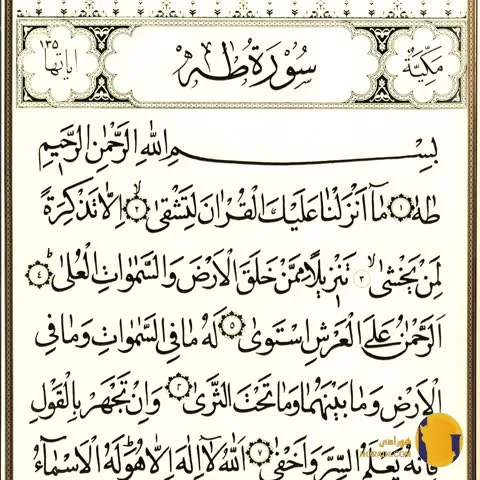 مكية سورة طه اياتها ١٣٥
بسم الله الرحمن الرحيم
طه ١ ما انزلنا عليك القران لتشقى ٢ الا تذكرة
لمن يخشى ٣ تنزيلا ممن خلق الارض والسموات العلى ٤
الرحمن على العرش استوى ٥ له ما في السموات وما في
الارض وما بينهما وما تحت الثرى ٦ وان تجهر بالقول
فانه يعلم السر واخفى ٧ الله لا اله الا هو له الاسماء